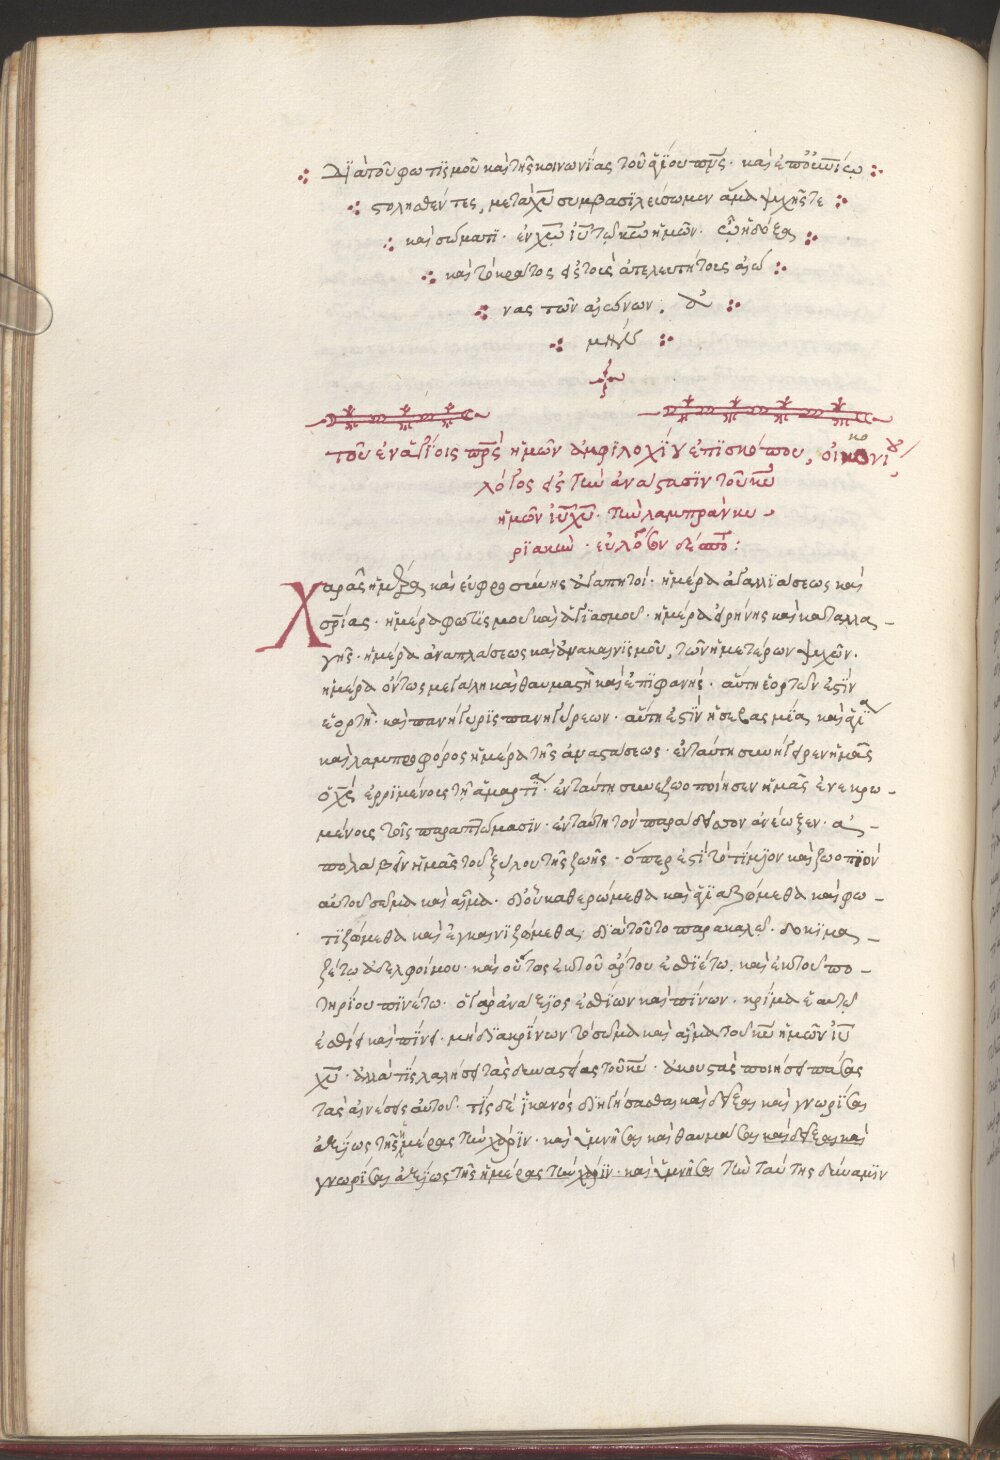 Διὰ τοῦ φωτϊσμοῦ καὶ τῆς κοινωνίας τοῦ ἁγίου πνς· καὶ
στοληθέντες, μετὰ χυ συμβασϊλεύσωμεν ἅμα ψυχῆς τε
καὶ σώματι· ἐν χω ιυ τῷ κω ἡμῶν· ὧ ἡ δόξα
καὶ τὸ κράτος εἰς τοὺς ἀτελευτήτους αἰῶ
νας τῶν αἰώνων. ἀ
μήν
τοῦ ἐν ἁγίοις πρς ἡμῶν ἀμφϊλοχίου ἐπϊσκόπου, οἰκονι
λόγος εἰς τὴν ἀνάστασϊν τοῦ κυ
ἡμῶν ιυ χυ· τὴν λαμπρὰν κυ
ρϊακὴν· εὐλόγησον δέσποτα:
Χαρᾶς ἡμέρα καὶ εὐφροσύνης ἀγαπητοί· ἡμέρα ἀγαλλϊάσεως καὶ
σρίας· ἡμέρα φωτϊσμοῦ καὶ ἁγϊασμοῦ· ἡμέρα εἰρήνης καὶ καταλλα
γῆς· ἡμέρα ἀναπλάσεως καὶ ἀνακαινϊσμοῦ, τῶν ἡμετέρων ψυχῶν.
ἡμέρα ὄντως μεγάλη καὶ θαυμαστὴ καὶ ἐπϊφανής· αὕτη ἑορτῶν ἐστϊν
ἑορτὴ· καὶ πανήγυρϊς πανηγύρεων· αὕτη ἐστϊν ἡ σεβασμία καὶ ἁγία
καὶ λαμπροφόρος ἡμέρα τῆς ἀναστάσεως· ἐν ταύτη συνήγειρεν ἡμᾶς
ὁ χς ἐρριμένους τῇ ἁμαρτία· ἐν ταύτη συνεζωοποίησεν ἡμᾶς ἐνεκρω
μένους τοῖς παραπτώμασϊν· ἐν ταύτη τὸν παράδεισον ἀνέωξεν· ἀ
πολαβεῖν ἡμᾶς τοῦ ξύλου τῆς ζωῆς· ὅπερ ἐστὶ τὸ τίμϊον καὶ ζωοπϊὸν
αὐτοῦ σῶμα καὶ αἷμα· δϊ οὗ καθερώμεθα καὶ ἁγϊαζόμεθα καὶ φω
τϊζόμεθα καὶ ἐγκαινϊζόμεθα· διὰ τοῦτο παρακαλῶ· δοκϊμα
ζέτω ἀδελφοί μου· καὶ οὕτως ἐκ τοῦ ἄρτου ἐσθϊέτω. καὶ ἐκ τοῦ πο
τηρίου πϊνέτω· ὁ γὰρ ἀνάξϊος ἐσθίων καὶ πίνων· κρίμα ἑαυτῷ
ἐσθίει καὶ πίνει· μὴ δϊακρίνων τὸ σῶμα καὶ αἷμα τοῦ κυ ἡμῶν ιυ
χυ· ἀλλὰ τίς λαλήσει τὰς δυναστείας τοῦ κυ· ἀκουστὰς ποιήσει πάσας
τὰς αἰνέσεις αὐτοῦ· τίς δὲ ἱκανὸς δϊηγήσασθαι καὶ δεῖξαι καὶ γνωρίσαι
ἀξίως τῆς ἡμέρας τὴν χάρϊν· καὶ ὑμνῆσαι καὶ θαυμάσαι καὶ δεῖξαι καὶ
γνωρίσαι ἀξίως τῆς ἡμέρας τὴν χάρϊν· καὶ ὑμνῆσαι τὴν ταύτης δύναμϊν